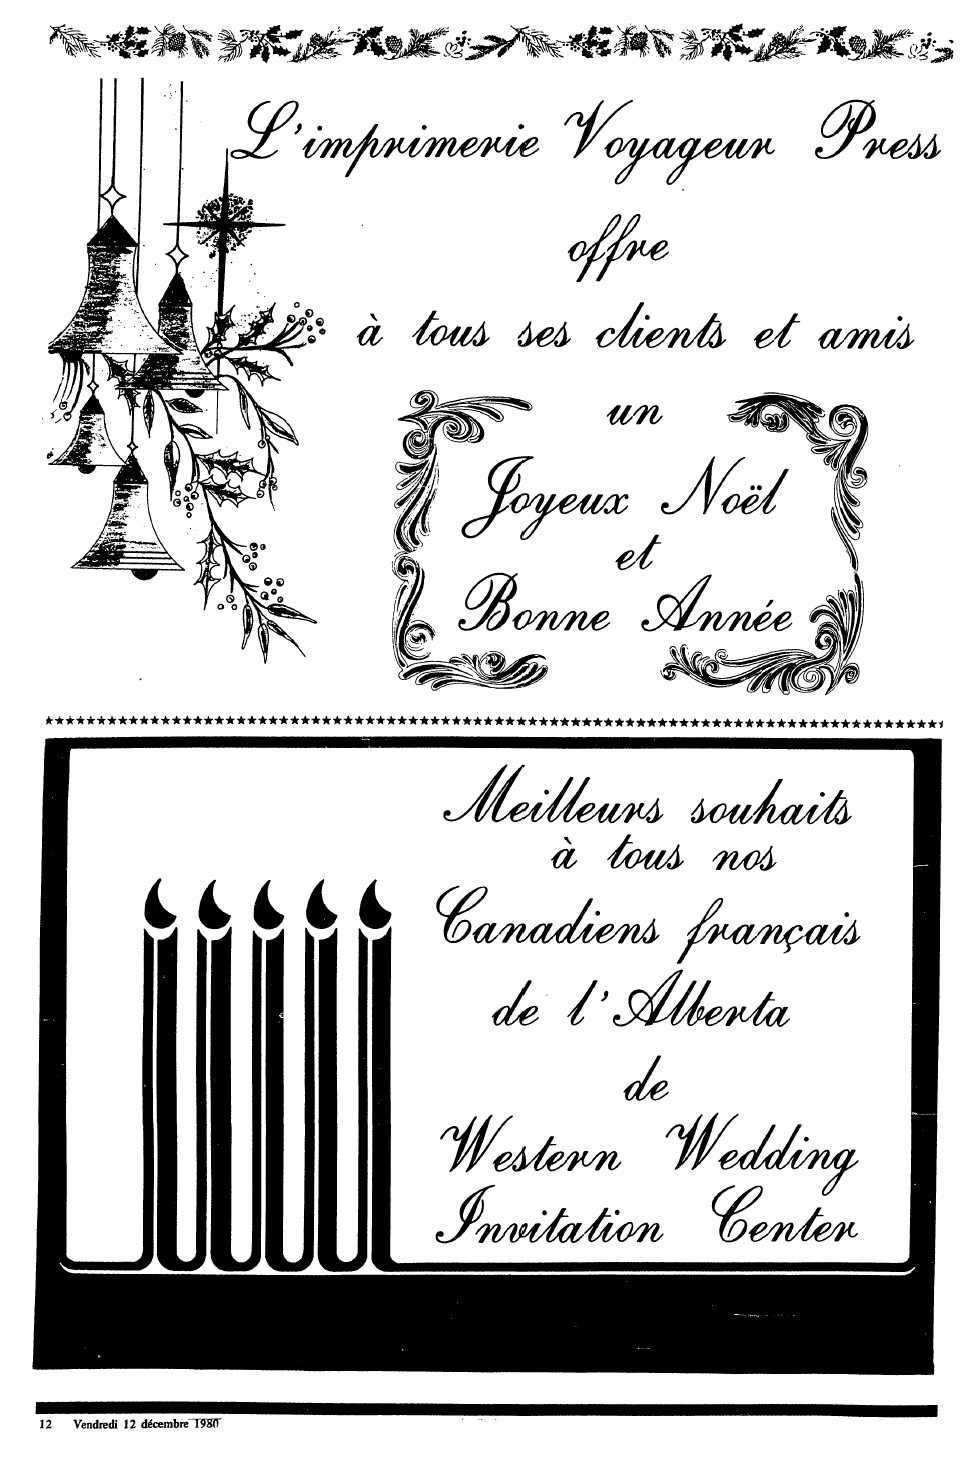 L'imprimerie Voyageur Press
offre
à tous ses clients et amis
un
Joyeux Noël
et
Bonne Année
Meilleurs souhaits
à tous nos
Canadiens français
de l'Alberta
de
Western Wedding
Invitation Center
12 Vendredi 12 décembre 1980